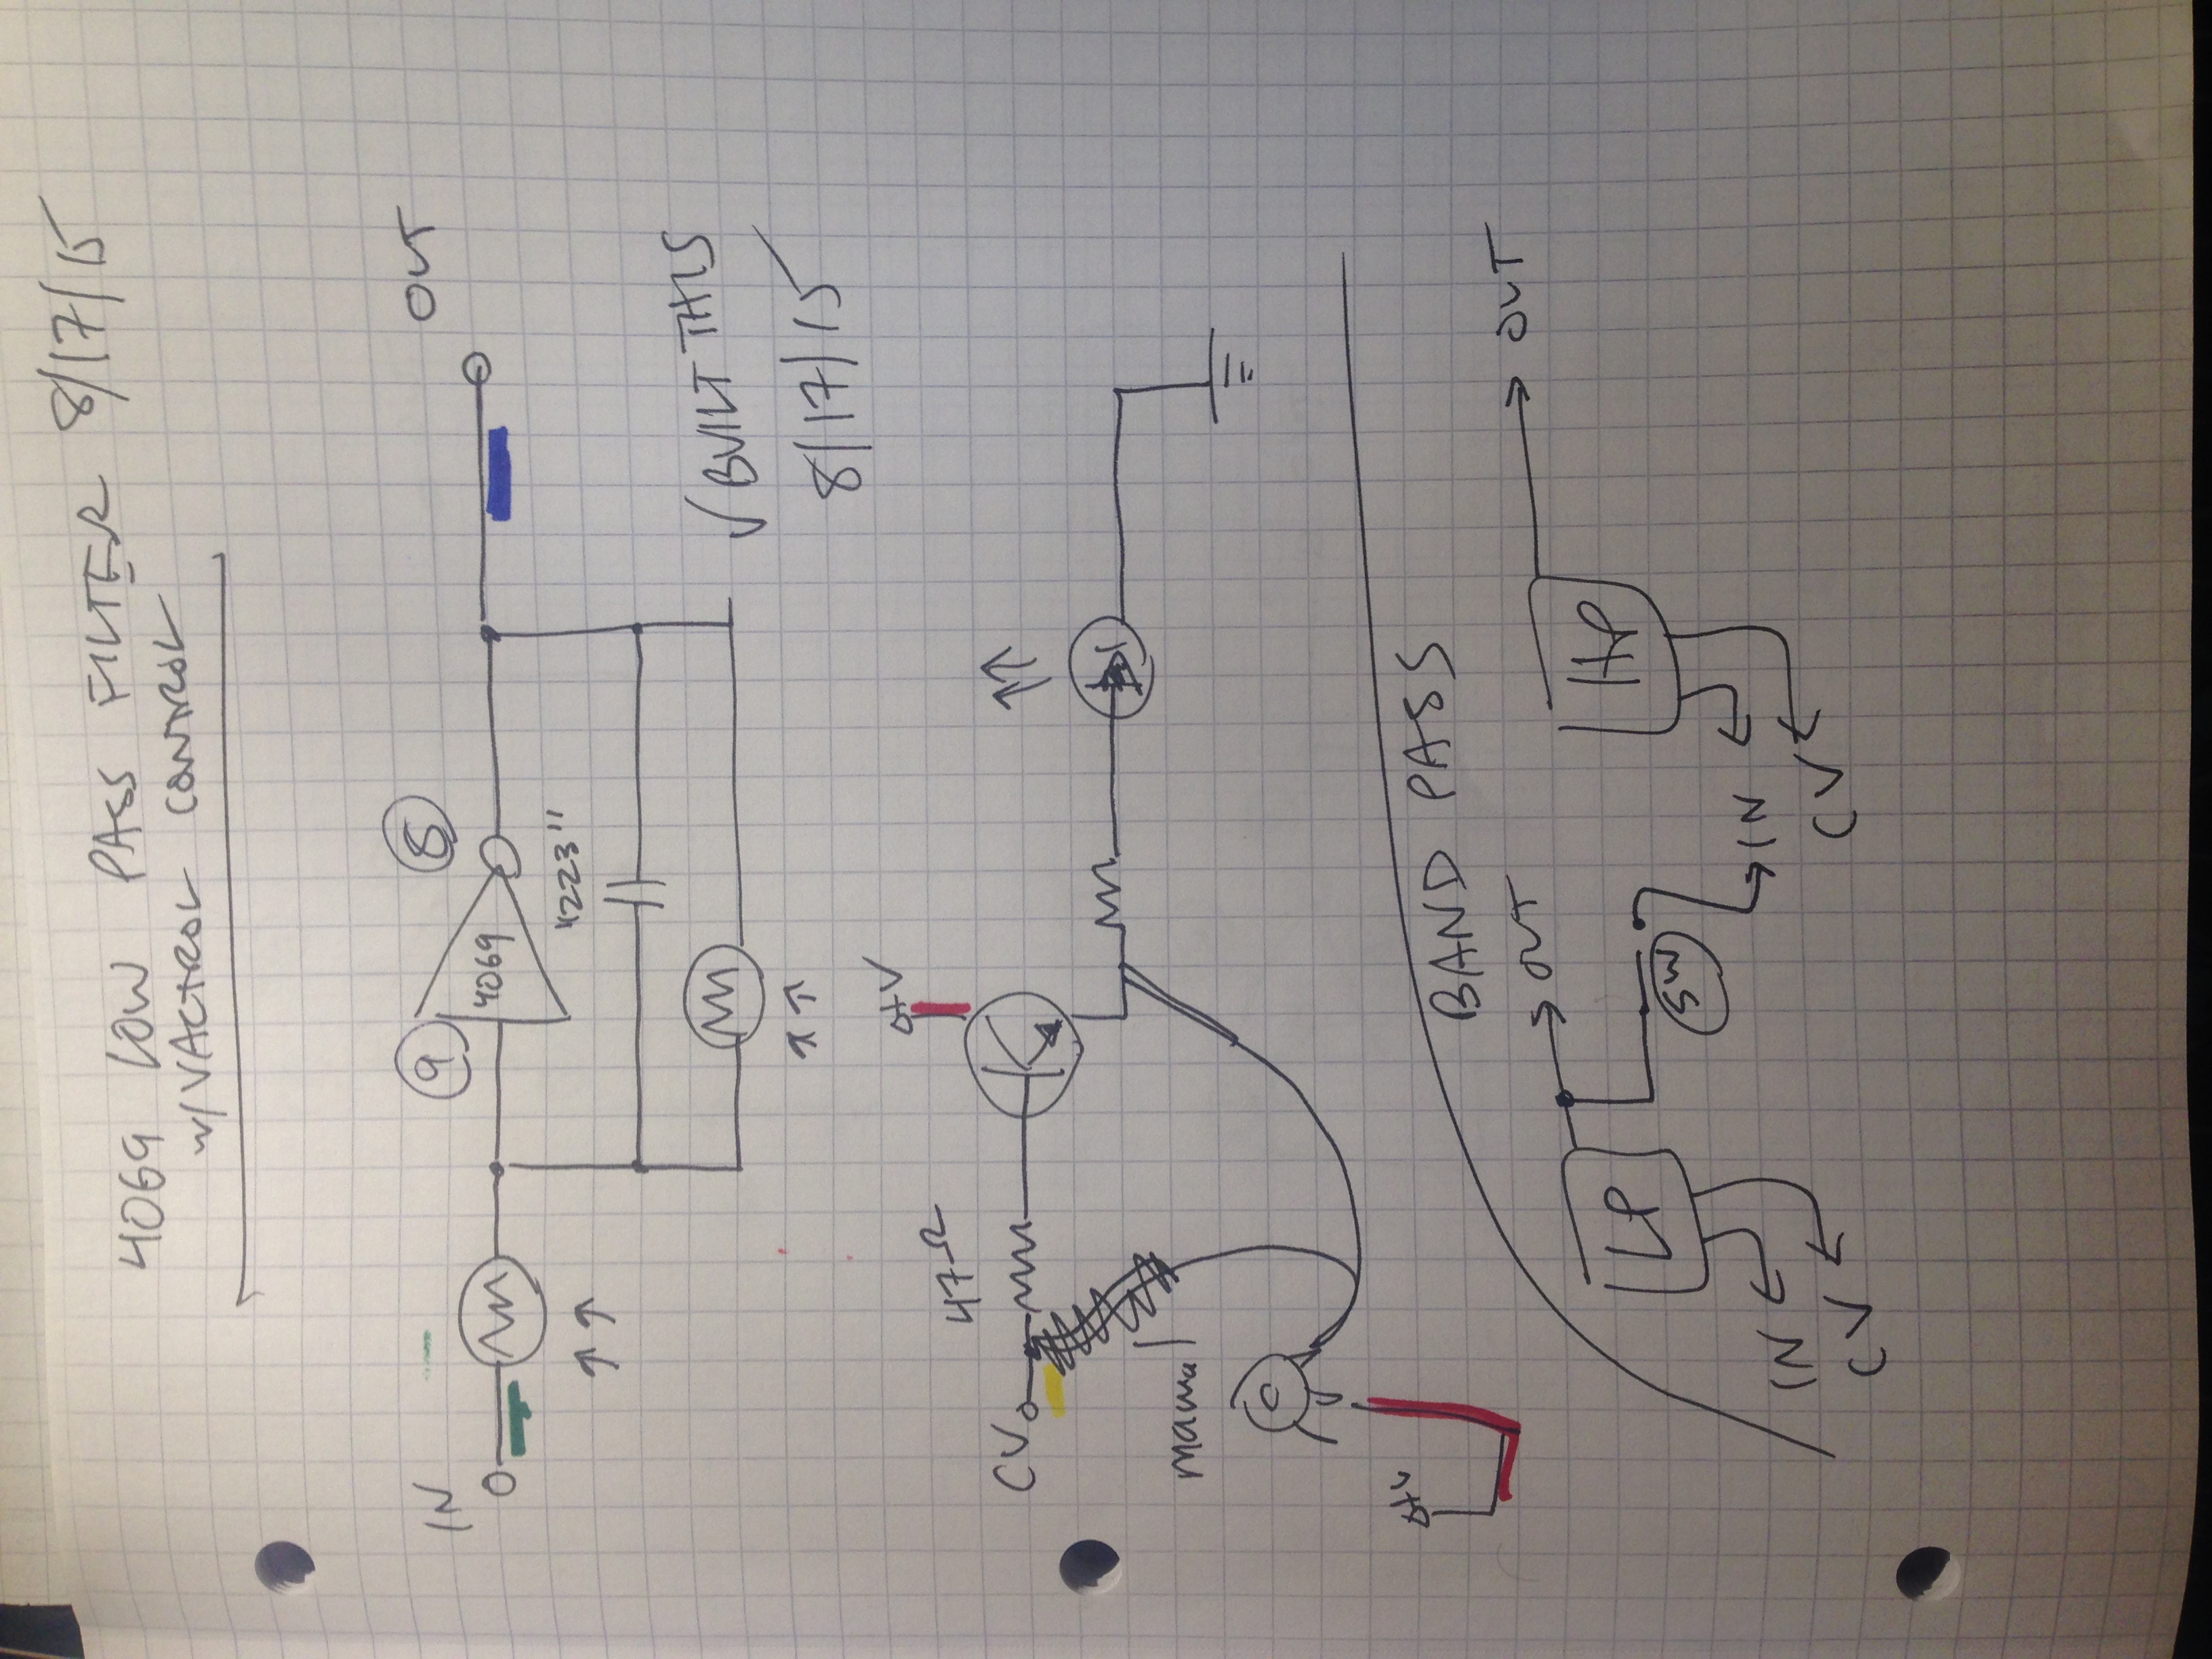 4069 LOW PASS FILTER 8/17/15
w/VACTROL CONTROL
IN
9
8
OUT
4069
"223"
√ BUILT THIS
8/17/15
+V
47Ω
CV
manual
+V
BAND PASS
OUT
OUT
LP
HP
SW
IN
IN
CV
CV